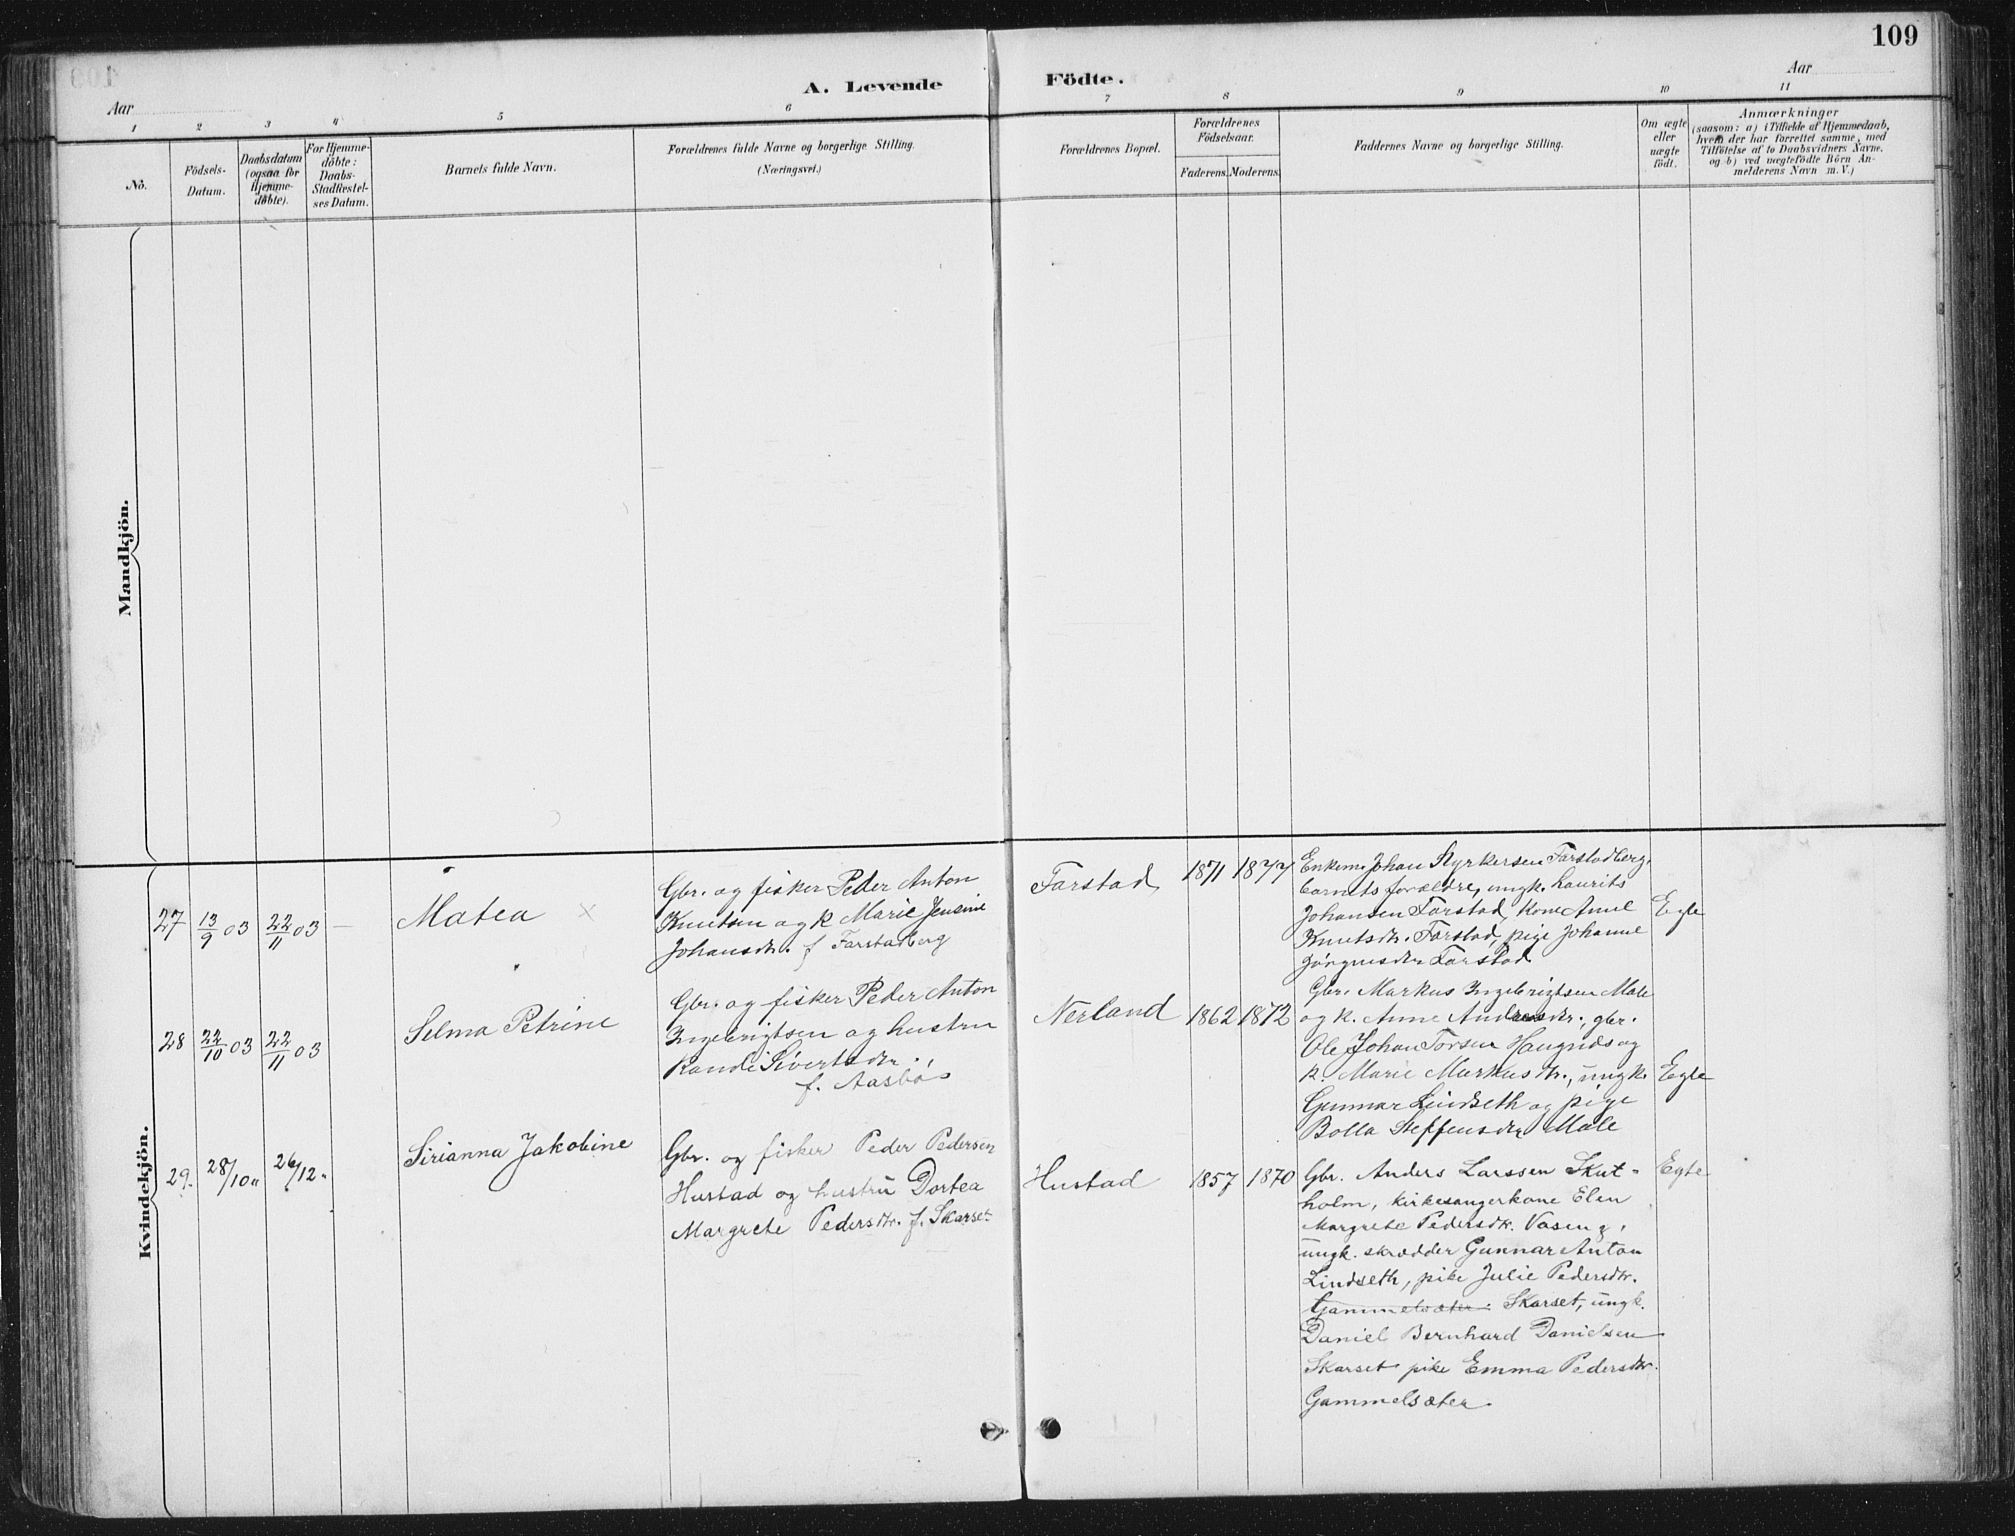 109
A. Levende Födte.
Aar
Aar
1 2 3 4 5 6 7 8 9 10 11
No.
Födsels-
Datum.
Daabsdatum
(ogsaa for
Hjemme-
döbte).
For Hjemme-
döbte:
Daabs-
Stadfæstel-
ses Datum.
Barnets fulde Navn.
Forældrenes fulde Navne og borgerlige Stilling.
(Næringsvei.)
Forældrenes Bopæl.
Forældrenes
Födselsaar.
Faderens. Moderens.
Faddernes Navne og borgerlige Stilling.
Om ægte
eller
uægte
födt.
Anmærkninger
(saasom: a) i Tilfælde af Hjemmedaab,
hvem der har forrettet samme, med
Tilföielse af to Daabsvidners Navne,
og b) ved uægtefödte Börn An-
melderens Navn m. V.)
Mandkjön.
Kvindekjön.
27 13/9 03 22/11 03 —
Matea ×
Gbr. og fisker Peder Anton
Knutsen og k Marie Jensine
Johansdtr. f Farstadberg
Farstad
1871 1877
Enkem. Johan Styrkersen Farstadberg,
barnets forældre, ungk. Laurits
Johansen Farstad, Kone Anne
Knutsdtr. Farstad, pige Johanne
Jörgensdtr Farstad
Egte
28 22/10 03 22/11 03
Selma Petrine
Gbr. og fisker Peder Anton
Ingebrigtsen og hustru
Randi Sivertsdtr.
f. Aasbö
Nerland
1862 1872
Gbr. Markus Ingebrigtsen Male
og k. Anne Andreasdtr., gbr.
Ole Johan Torsen Haugnds og
k. Marie Markusdtr., ungk.
Gunnar Lindseth og pige
Bolla Steffensdtr Male
Egte
29. 28/10 " 26/12 "
Sirianna Jakobine
Gbr. og fisker Peder Pedersen
Hustad og hustru Dortea
Margrete Pedersdtr. f. Skarset
Hustad
1857 1870
Gbr. Anders Larssen Skut-
holm, kirkesangerkone Elen
Margrete Pedersdtr. Vaseng,
ungk. skrædder Gunnar Anton
Lindseth, pike Julie Pedersdtr.
Gammelsæter Skarset, ungk.
Daniel Bernhard Danielsen
Skarset pike Emma Pedersdtr.
Gammelsæter.
Egte